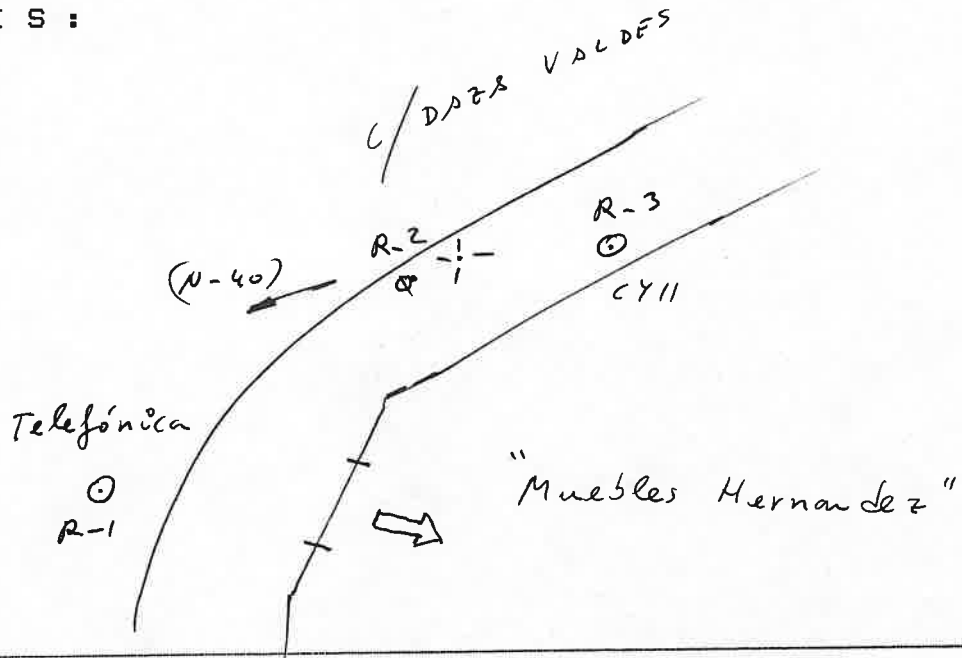 S :
C/ DAZA VALDES
R-2
R-3
(N-40)
CYII
Telefónica
R-1
"Muebles Hernandez"